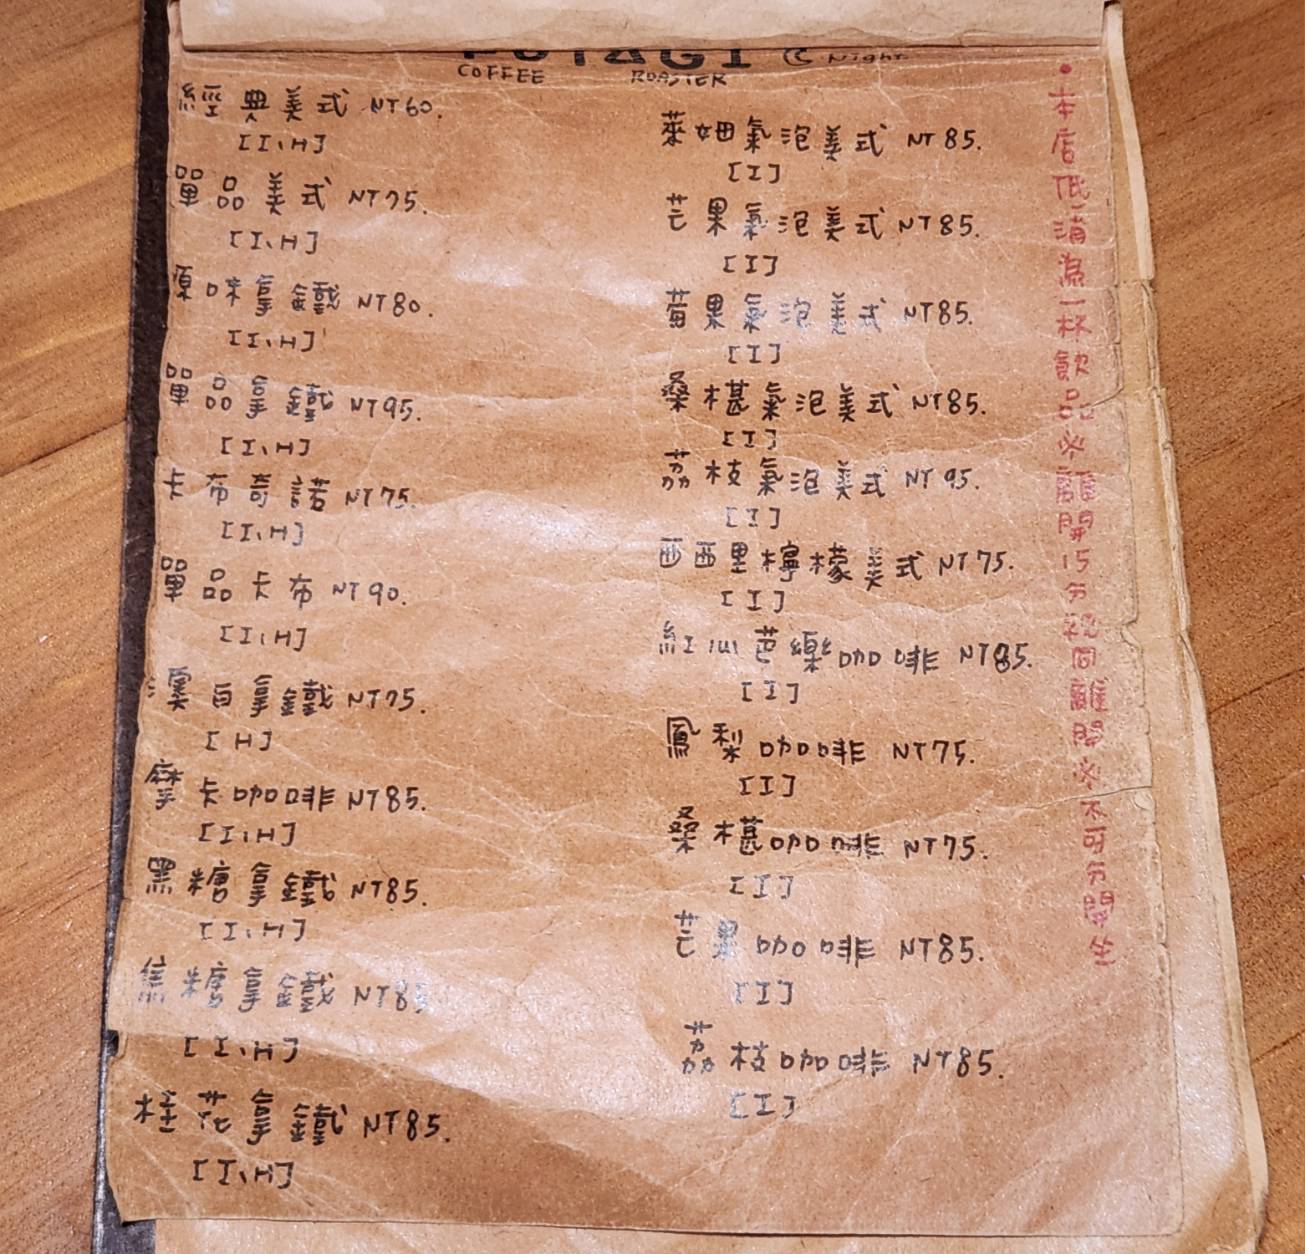 COFFEE ROASTER Night
經典美式 NT60.
[I、H]
單品美式 NT75.
[I、H]
原味拿鐵 NT80.
[I、H]
單品拿鐵 NT95.
[I、H]
卡布奇諾 NT75.
[I、H]
單品卡布 NT90.
[I、H]
澳白拿鐵 NT75.
[H]
摩卡咖啡 NT85.
[I、H]
黑糖拿鐵 NT85.
[I、H]
焦糖拿鐵 NT85
[I、H]
桂花拿鐵 NT85.
[I、H]
萊姆氣泡美式 NT85.
[I]
芒果氣泡美式 NT85.
[I]
莓果氣泡美式 NT85.
[I]
桑椹氣泡美式 NT85.
[I]
荔枝氣泡美式 NT95.
[I]
西西里檸檬美式 NT75.
[I]
紅心芭樂咖啡 NT85.
[I]
鳳梨咖啡 NT75.
[I]
桑椹咖啡 NT75.
[I]
芒果咖啡 NT85.
[I]
荔枝咖啡 NT85.
[I]
•本店低消為一杯飲品※離開15分視同離開※不可分開坐